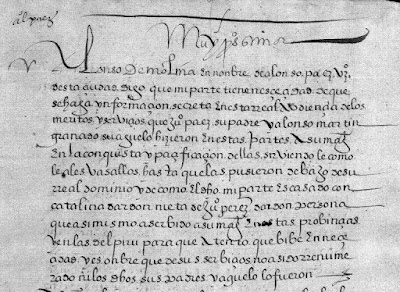 al juez
Muy pos sor
Alonso De molina en nonbre de alonso paez vzº
desta ciudad digo que mi parte tiene nescesidad de que
se haga ynformaçion secreta en esta rreal audiençia de los
meritos y serviçios que juº paez su padre y alonso martin
granado su aguelo hizieron en estas partes A su magt
En la conquista y paçificaçion dellas sirviendo le como
leales vasallos hasta que las pusieron debaxo de su
rreal dominio y de como el dho mi parte Es casado con
catalina dardon nieta de juº perez dardon persona
que asimismo a serbido a su magt En estas probinçias
y en las del piru para que A tento que bibe En neçe
çidad y es onbre que de sus serbiçios no a sido rremune
rado ni los dhos sus padres y aguelo lo fueron